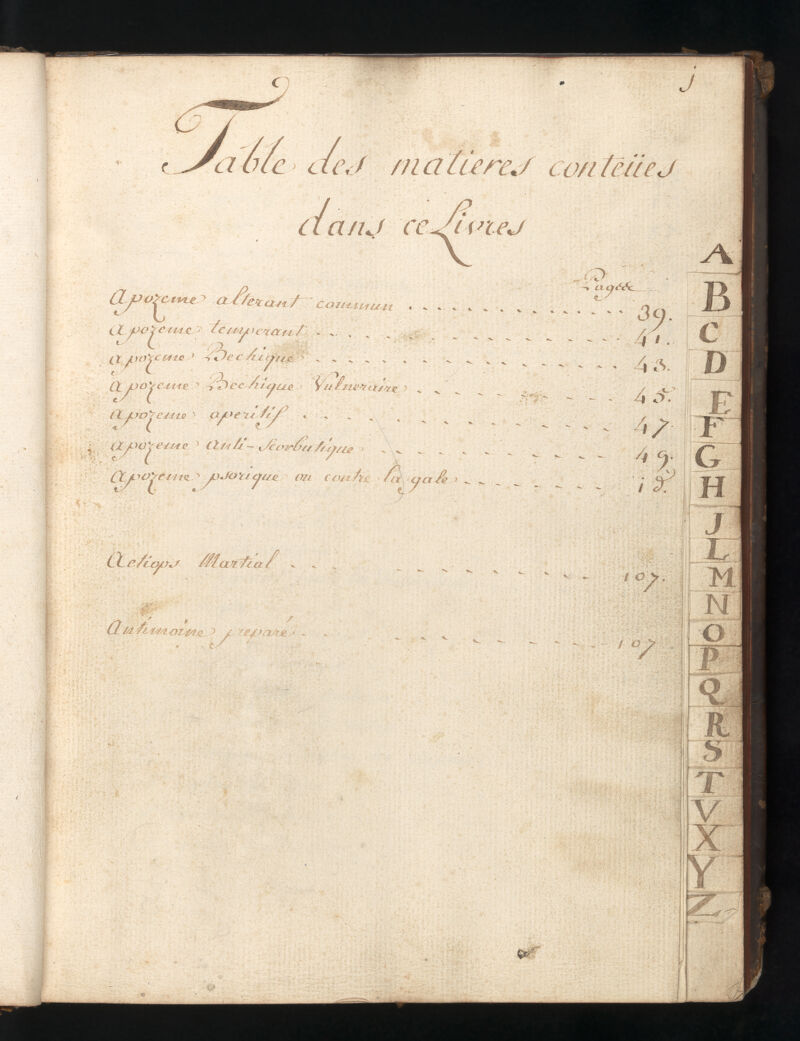 j
Table des matieres conteües
dans ce Livres
Apozeme alterant commun . . . . . . . . . . . . . . . 39.
apozeme temperant . . . . . . . . . . . . . . 41.
apozeme Bechique . . . . . . . . . . . . . . 43.
apozeme Bechique Vulneraire . . . . . . . . . 45.
apozeme aperitif . . . . . . . . . . . . . 47
apozeme anti-scorbutique . . . . . . . . . . 49.
apozeme psorique ou contre la gale . . . . . . . . id.
Aetiops Martial . . . . . . . . . . . 107.
Antimoine preparé . . . . . . . . . . 107
A
B
C
D
E
F
G
H
J
L
M
N
O
P
Q
R
S
T
V
X
Y
Z